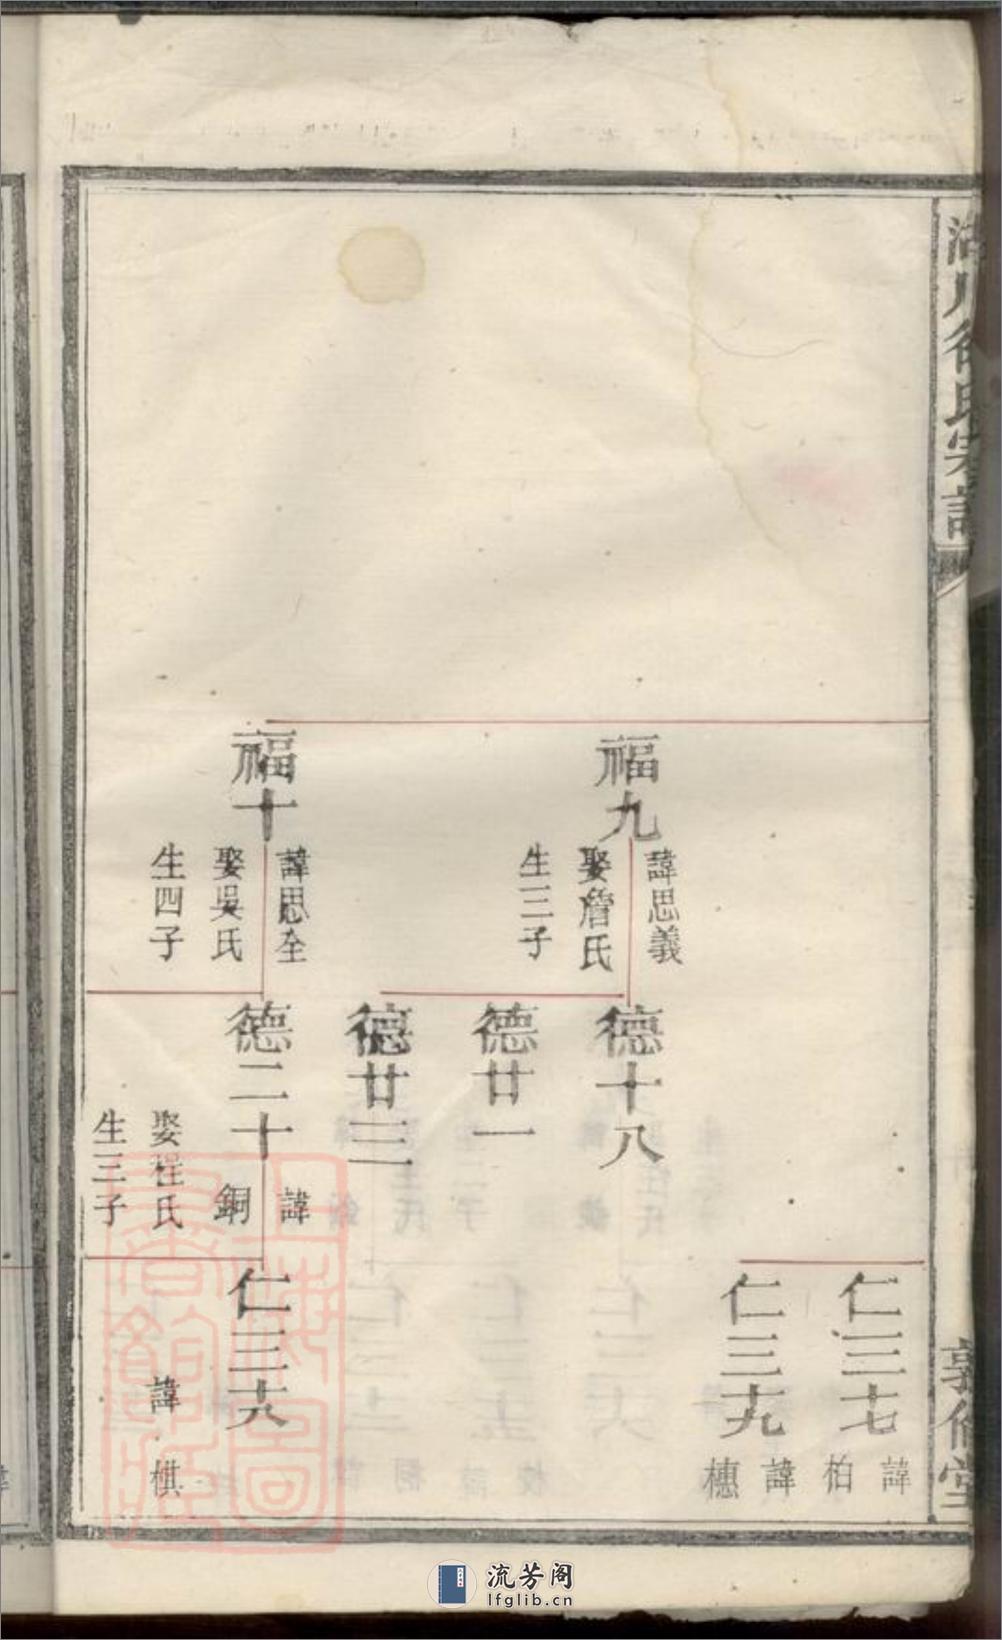 川徐氏宗譜
敦倫堂
福九
諱思義
娶詹氏
生三子
福十
諱思全
娶吳氏
生四子
德十八
德廿一
德廿三
德二十
諱
銅
娶程氏
生三子
仁三十七
諱
柏
仁三十九
諱
穗
仁三十八
諱
棋
上海圖書館藏
流芳阁
lfglib.cn